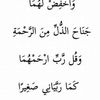 وَاخْفِضْ لَهُمَا
جَنَاحَ الذُّلِّ مِنَ الرَّحْمَةِ
وَقُل رَّبِّ ارْحَمْهُمَا
كَمَا رَبَّيَانِي صَغِيرًا